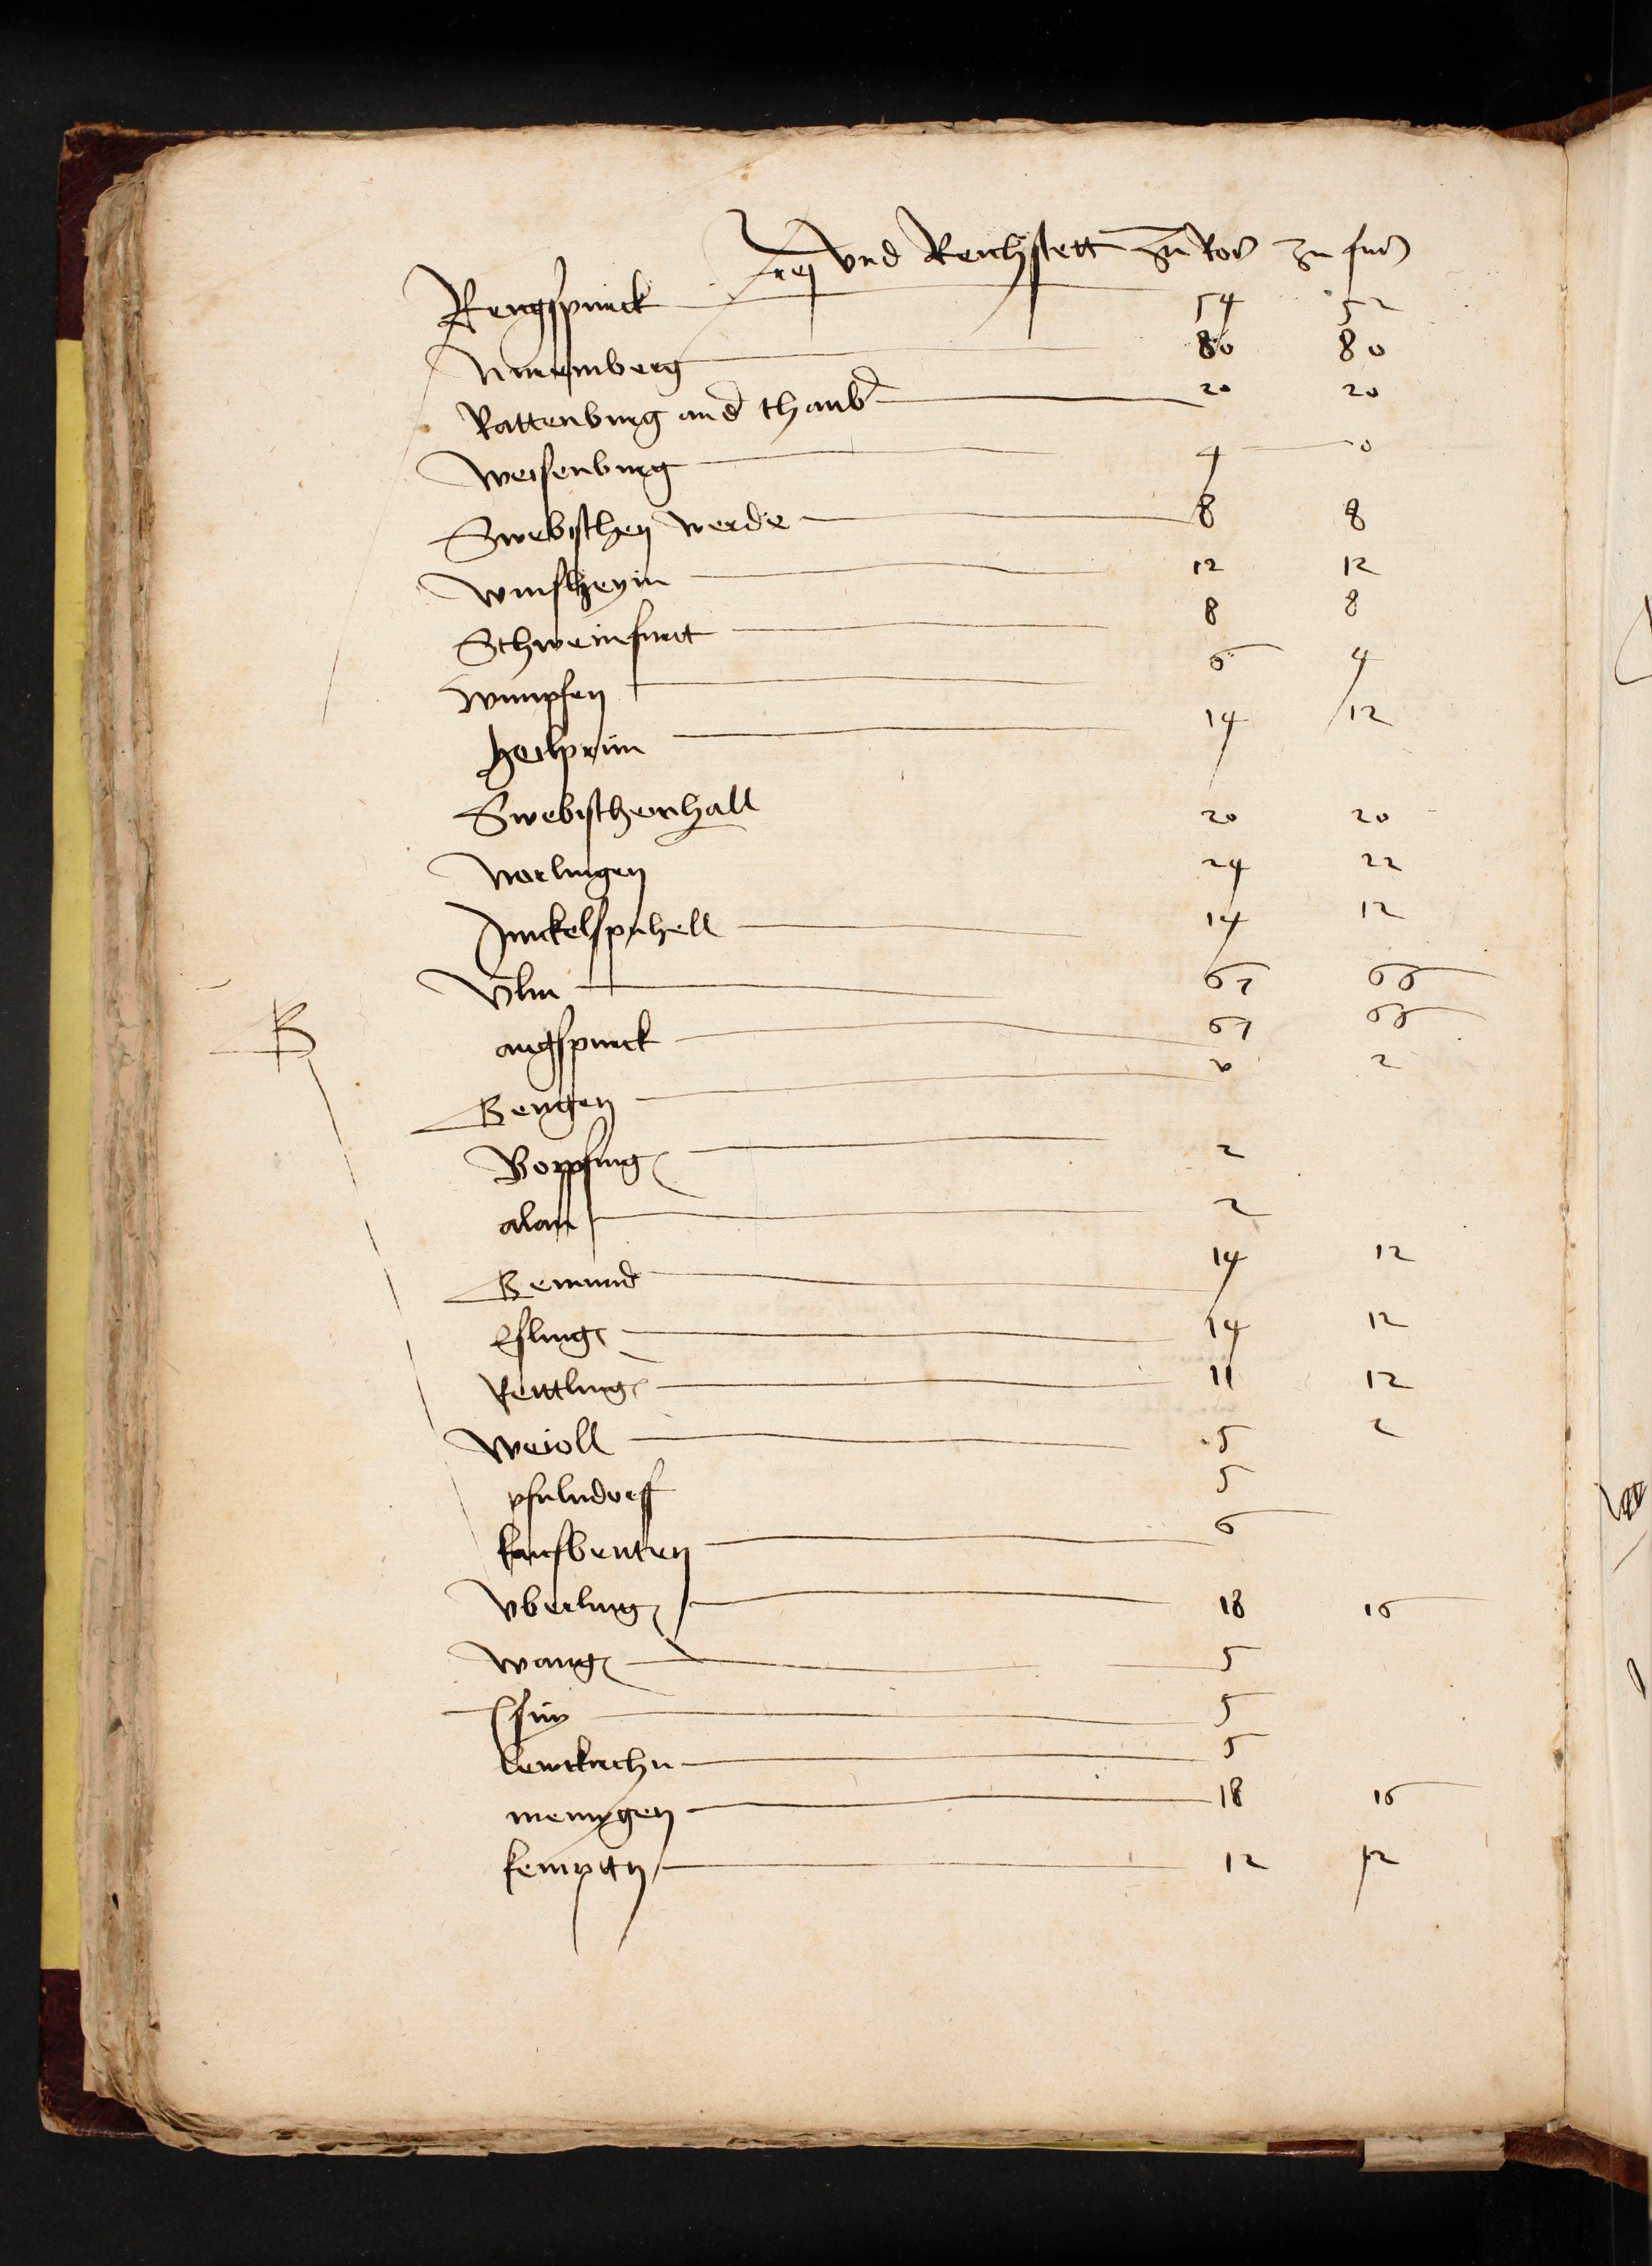 Frej vnd Reichstett zu Ros zu fus
Rengspurck 54 52
Nuremberg 80 80
Rattenburg and thaub 20 20
Weisenburg 4 0
Swebischen werde 8 8
Winsheym 12 12
Schweinfurt 8 8
Wimpfen 6 4
Heilprun 14 12
Swebischenhall 20 20
Norlingen 24 22
Dinckelspuhell 14 12
Vlm 67 66
augspurck 67 66
Gengen v 2
Bopfing 2
alan 2
Gemund 14 12
Esling 14 12
Reuttling 11 12
Weioll 5 2
pfulndorff 5
kaufbeuren 6
Vberling 18 16
Wang 5
Isny 5
lewtkirchn 5
memygen 18 16
kemptn 12 12